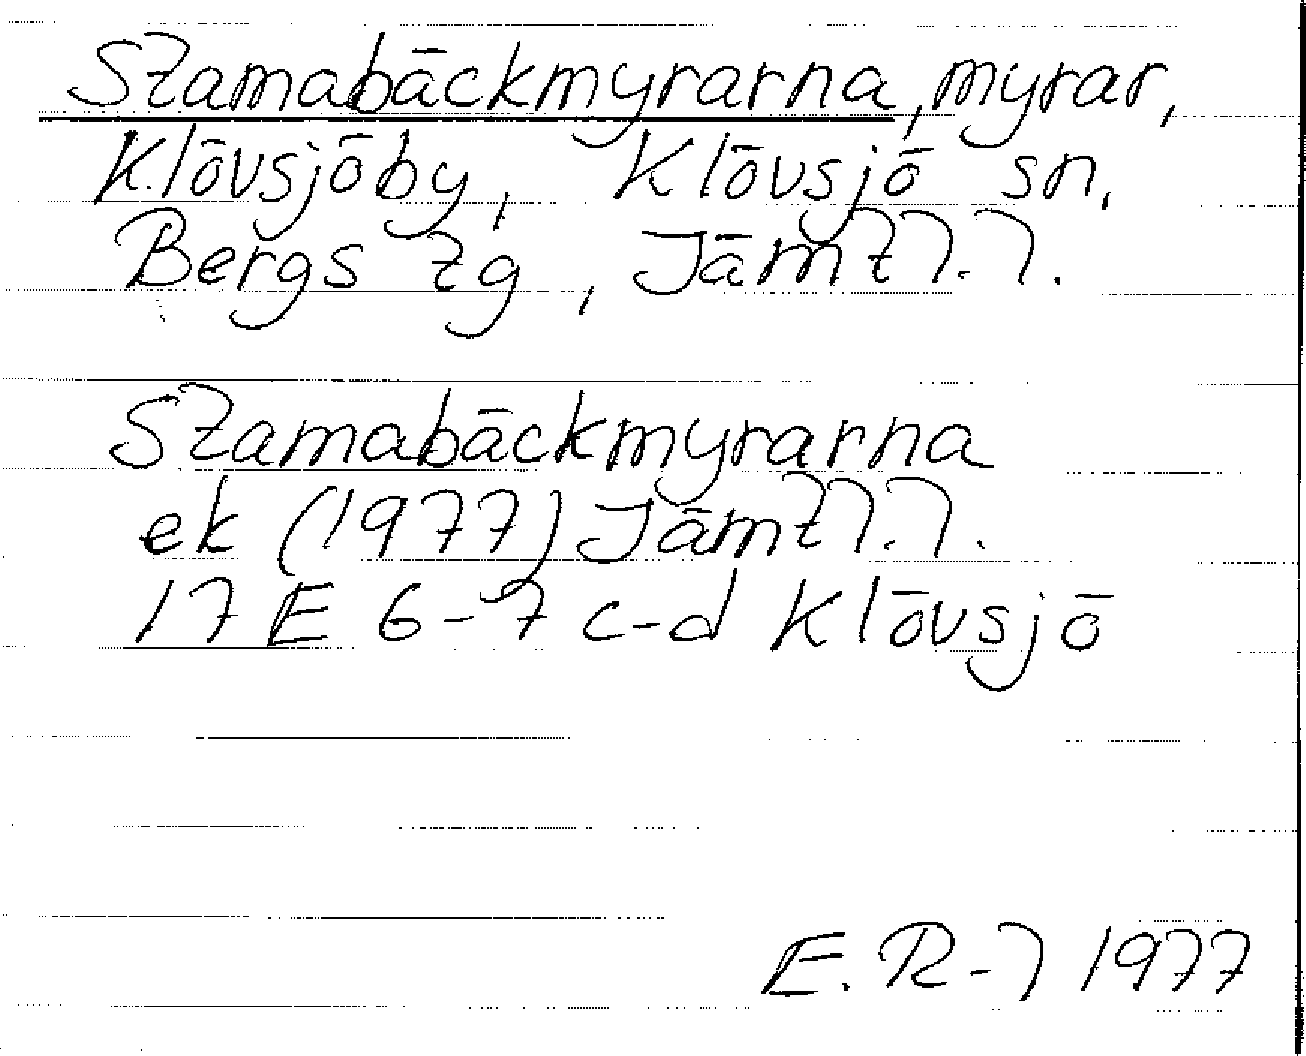 Stamabäckmyrarna, myrar,
Klövsjöby, Klövsjö sn,
Bergs tg, Jämtl.l.
Stamabäckmyrarna
ek (1977) Jämtl.l.
17 E 6-7 c-d Klövsjö
E. R-l 1977